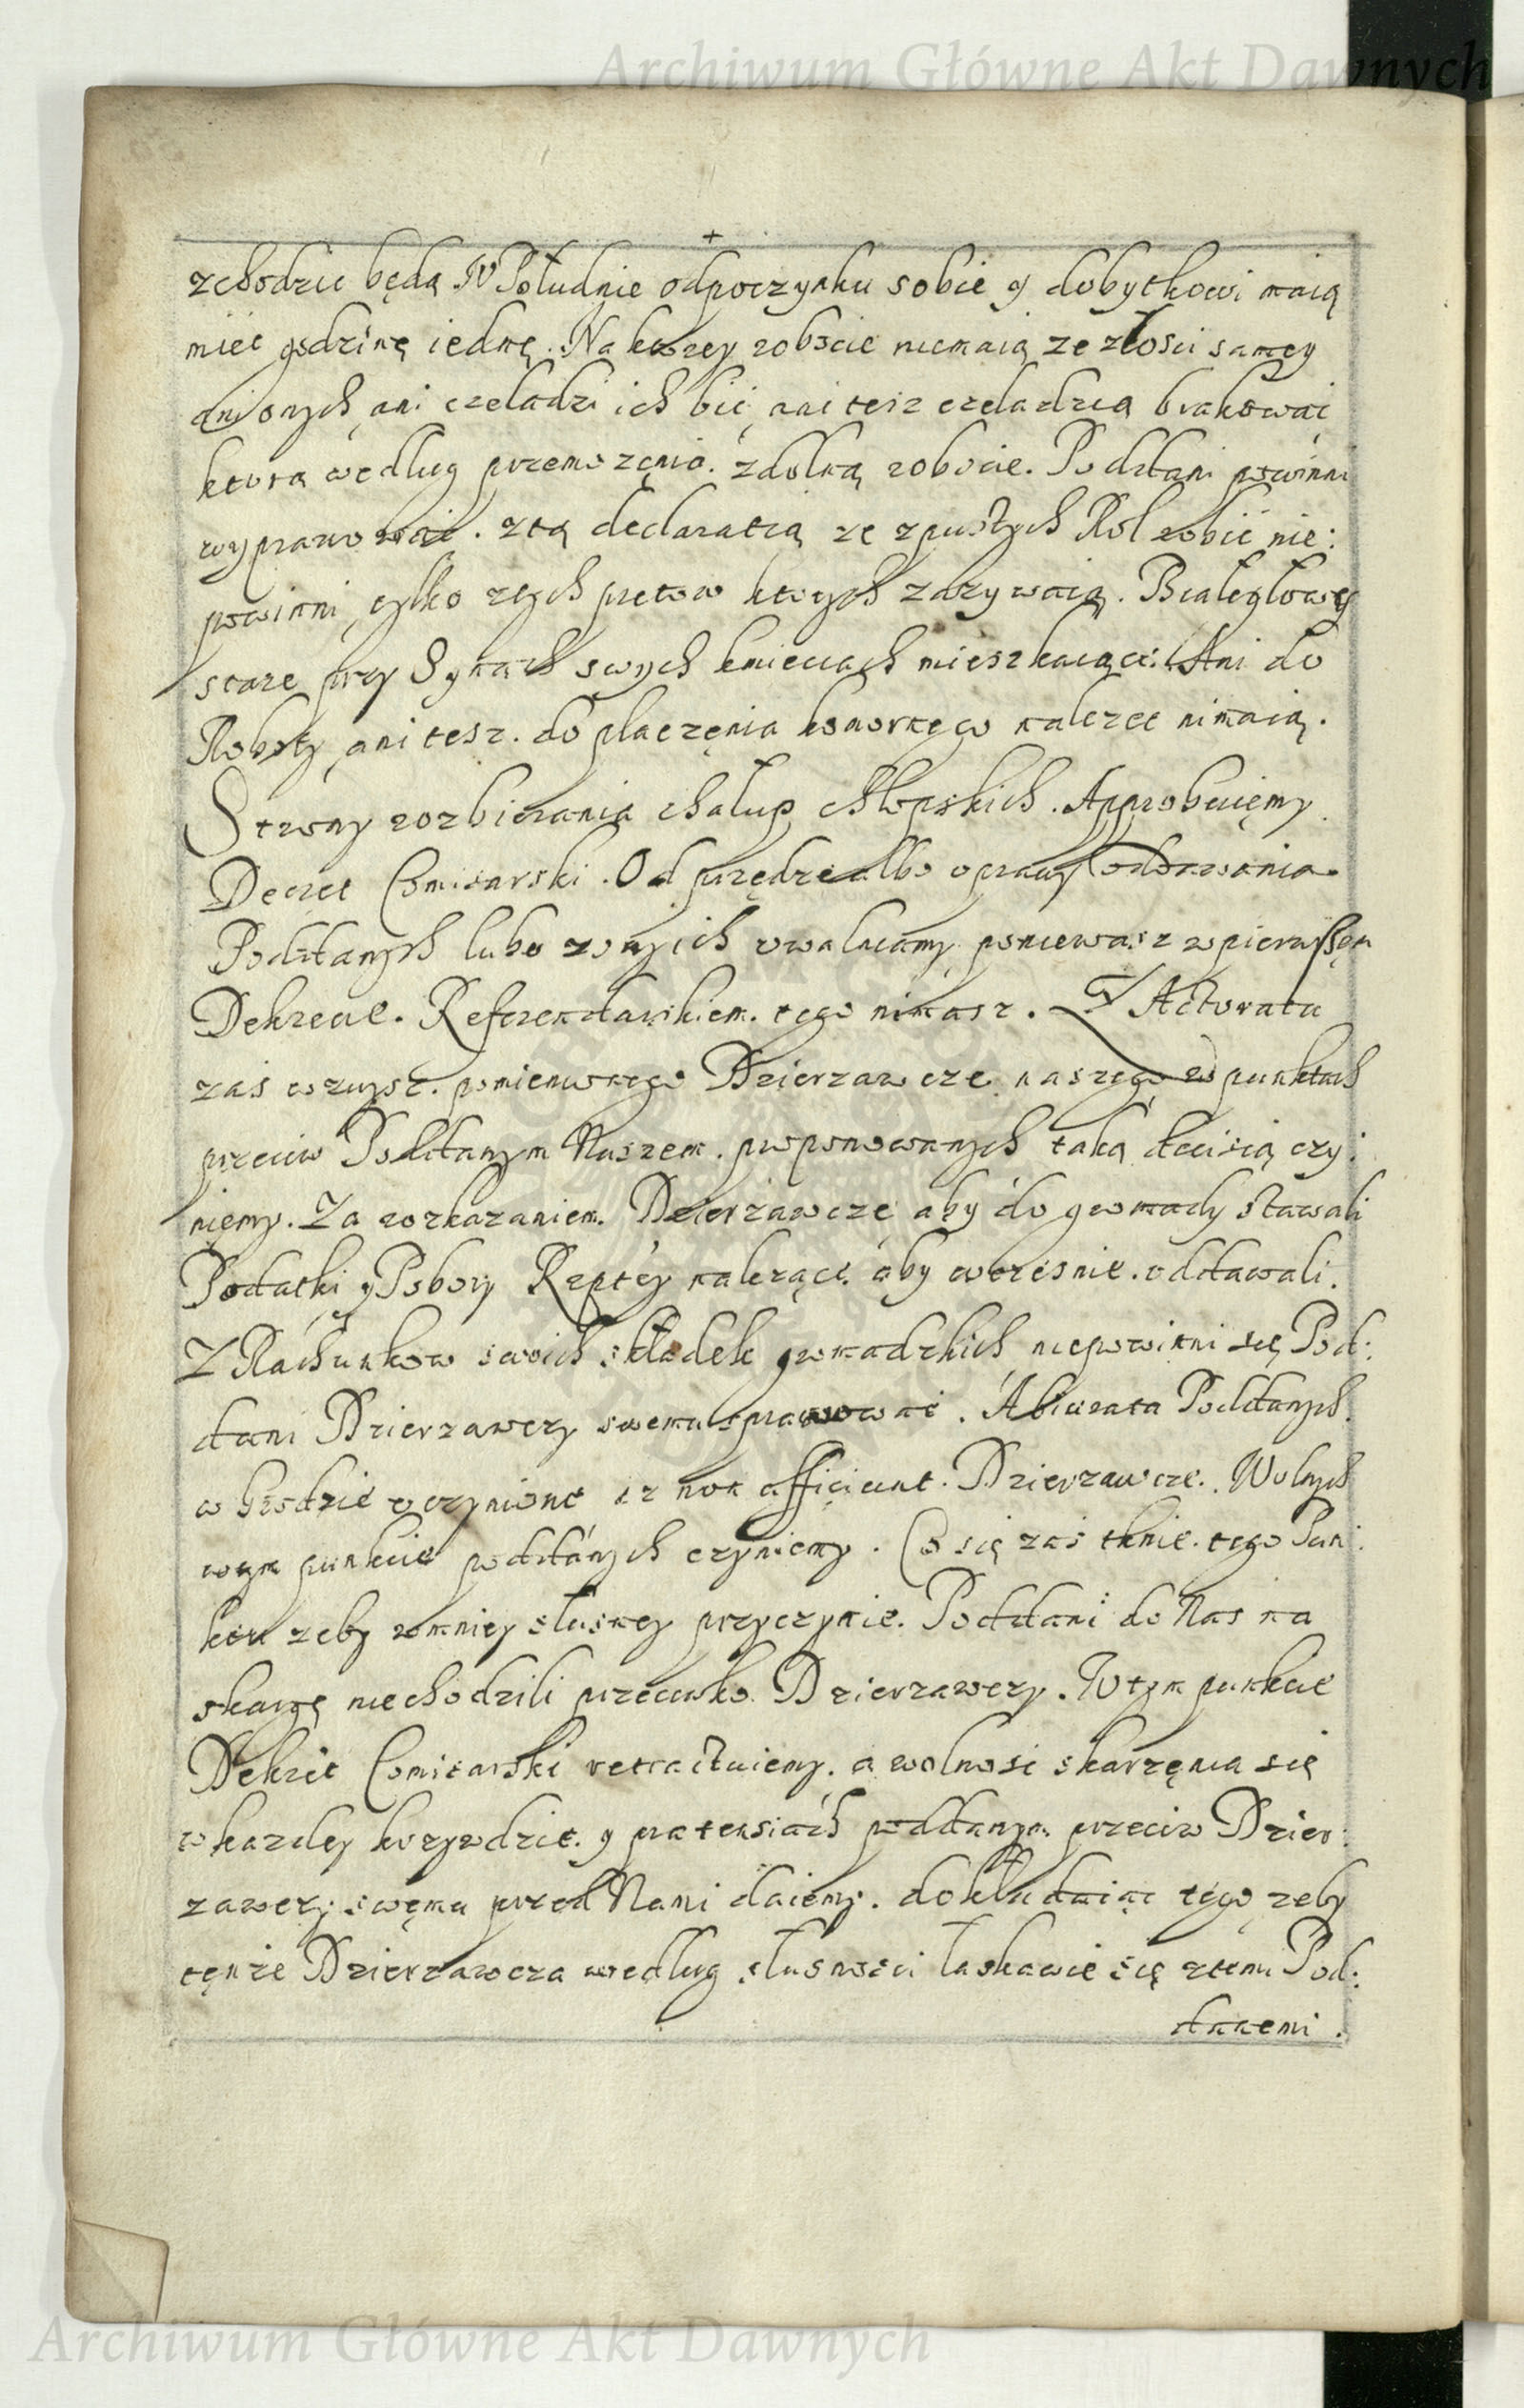 Archiwum Główne Akt Dawnych
zchodzic będą W Południe odpoczynku sobie y dobytkowi maią
miec godzinę iednę. Na ktorey robocie niemaią ze złosci samey
ani onych, ani czeladzi ich bić, ani tesz czeladzią brakować
ktora według przemozęnia. zdolną robocie. Poddani powinni
wyprawować. ztą declaratią ze zpustych Rol robić nie:
powinni, tylko ztych pretow ktorych zazywaią. Białegłowy
stare przy Synach swych kmieciach mieszkaiące. Ani do
Roboty, ani tesz. do płaczęnia komornego nalezec nimaią.
Strony rozbierania chałup chłopskich. Approbuięmy
Decret Comisarski. Od przędze albo oprawy
Poddanych lubo zonyich uwalniamy, poniewasz wpierwszęm
Dekrecie. Referendarskiem. tego nimasz. Z Actoratu
zas wzwysz. pomienionego Dzierzawcze naszego w punktach
przeciw Poddanym Naszem. proponowanych taką decisią czy:
nięmy. Za rozkazaniem. Dzierżawcze aby do gromady stawali
Podatki y Pobory Rzptey nalezące. aby wczesnie. oddawali.
Z Rachunkow swoich składek gromadzkich niepowinni się Pod:
dani Dzierzawczy swemu sprawować. Abiurata Poddanych
w Grodzie uczynione iz non afficiunt. Dzierzawcze. Wolnych
wtym punkcie poddanych czyniemy. Co się zaś tknie. tego Pun:
ktu zeby zmniey słusney przyczynie. Poddani do Nas na
skargę niechodzili przeciwko Dzierzawczy. W tym punkcie
Dekret Comisarski retractuiemy. a wolnosc skarzęnia się
wkazdey krzywdzie. y pratensiach poddanym przeciw Dzier:
zawczy swęmu przed Nami daiemy. dokładaiąc tego, zeby
tęnże Dzierzawcza według słusnosci łaskawie się ztemi Pod:
danemi.
Archiwum Główne Akt Dawnych